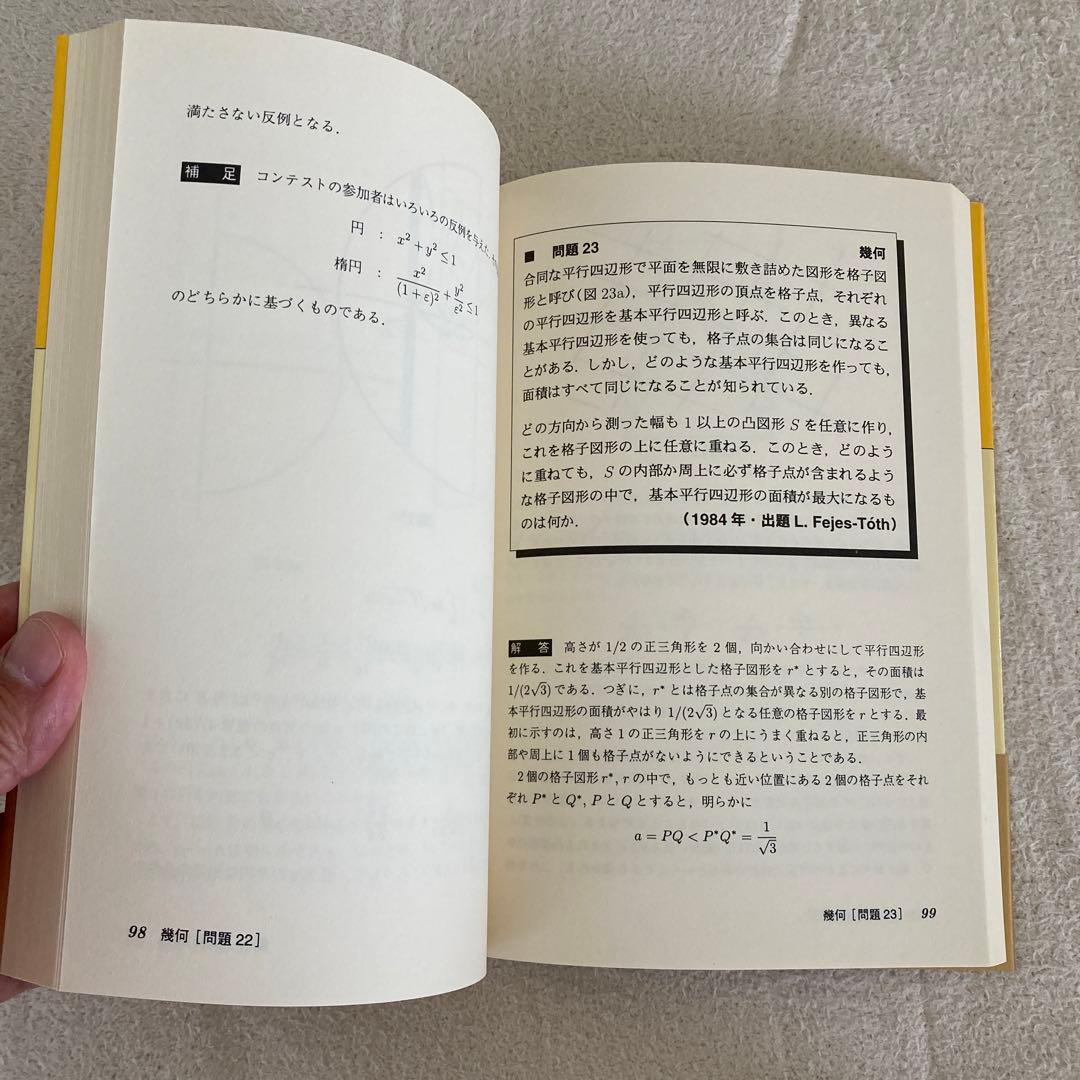 満たさない反例となる．
補 足 コンテストの参加者はいろいろの反例を与えた．
円 : x² + y² ≤ 1
楕円 : x²/(1+ε)² + y²/ε² ≤ 1
のどちらかに基づくものである．
98 幾何［問題 22］
■ 問題 23 幾何
合同な平行四辺形で平面を無限に敷き詰めた図形を格子図
形と呼び（図 23a），平行四辺形の頂点を格子点，それぞれ
の平行四辺形を基本平行四辺形と呼ぶ．このとき，異なる
基本平行四辺形を使っても，格子点の集合は同じになるこ
とがある．しかし，どのような基本平行四辺形を作っても，
面積はすべて同じになることが知られている．
どの方向から測った幅も 1 以上の凸図形 S を任意に作り，
これを格子図形の上に任意に重ねる．このとき，どのよう
に重ねても，S の内部か周上に必ず格子点が含まれるよう
な格子図形の中で，基本平行四辺形の面積が最大になるも
のは何か． （1984 年・出題 L. Fejes-Tóth）
解 答 高さが 1/2 の正三角形を 2 個，向かい合わせにして平行四辺形
を作る．これを基本平行四辺形とした格子図形を r* とすると，その面積は
1/(2√3) である．つぎに，r* とは格子点の集合が異なる別の格子図形で，基
本平行四辺形の面積がやはり 1/(2√3) となる任意の格子図形を r とする．最
初に示すのは，高さ 1 の正三角形を r の上にうまく重ねると，正三角形の内
部や周上に 1 個も格子点がないようにできるということである．
2 個の格子図形 r*, r の中で，もっとも近い位置にある 2 個の格子点をそれ
ぞれ P* と Q*, P と Q とすると，明らかに
a = PQ < P*Q* = 1/√3
幾何［問題 23］ 99